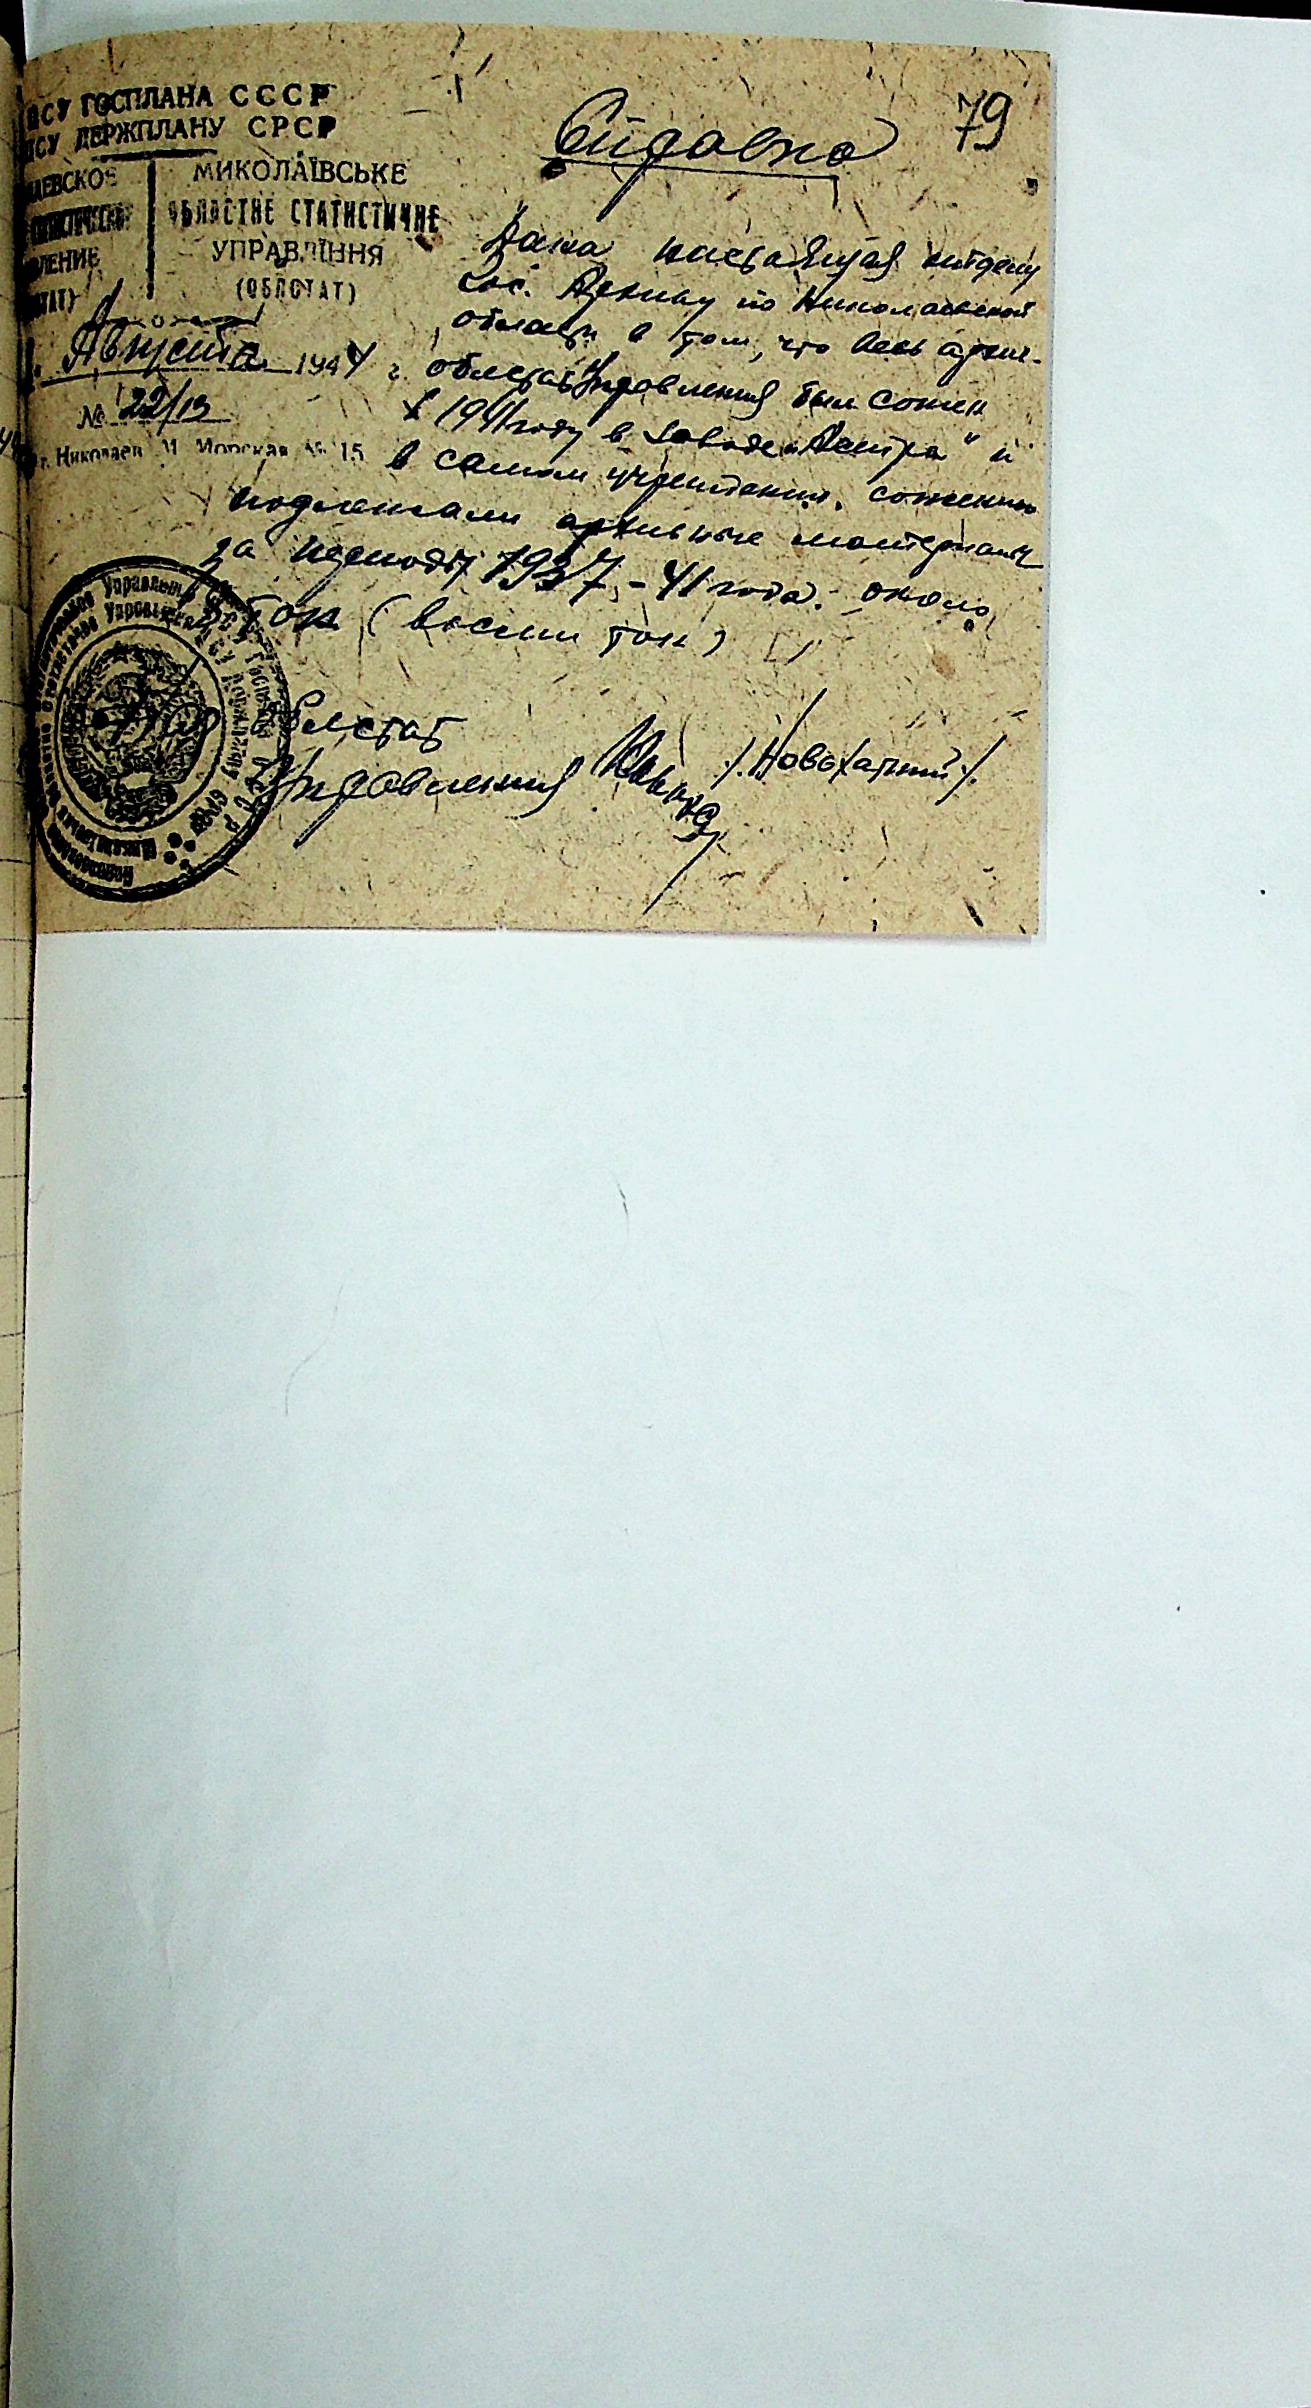 79
ЦСУ ГОСПЛАНА СССР
ЦСУ ДЕРЖПЛАНУ СРСР
МИКОЛАЇВСЬКЕ
ОБЛАСТНЕ СТАТИСТИЧНЕ
УПРАВЛІННЯ
(ОБЛСТАТ)
ЛЕНИЕ
Августа 1944 г.
№ 22/13
г. Николаев М. Морская № 15
Справка
Дана настоящая отделу
Гос. Архиву по Николаевской
области в том, что весь архив
облстат Управления был сожжен
в 1941 году в заводе "Астра" и
в самом учреждении. сожжению
подлежали архивные материалы
за период 1937-41 года. около
8 тон (восьми тон)
Облстат
Управления /Новохатний/.